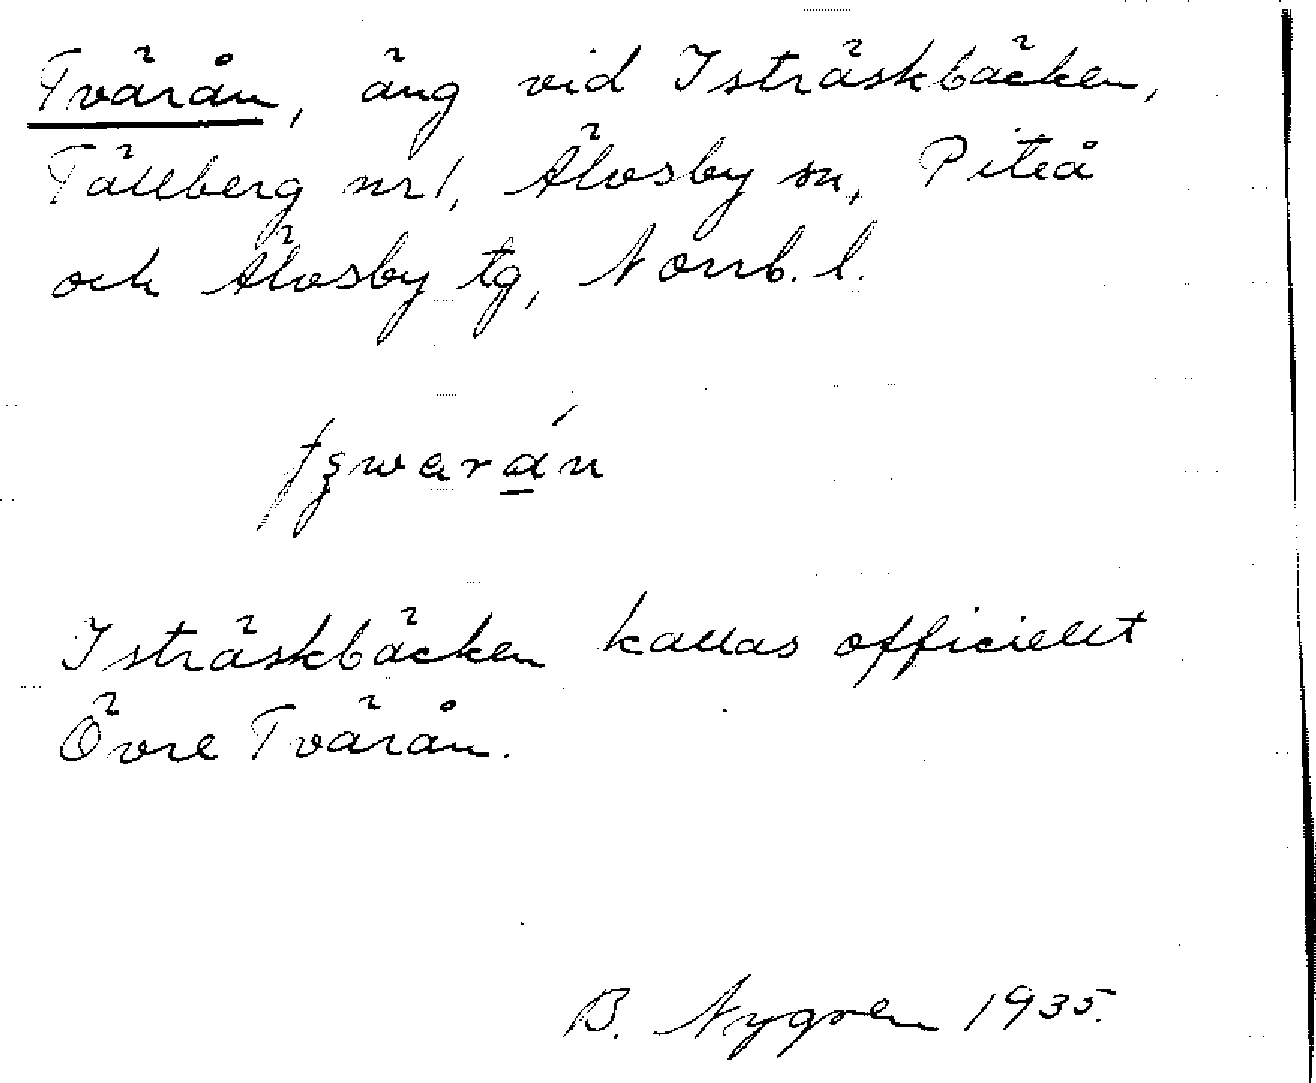 Tvärån, äng vid Isträskbäcken,
Tällberg nr 1, Älvsby sn, Piteå
och Älvsby tg, Norrb. l.
Isträskbäcken kallas officiellt
Övre Tvärån.
B. Nygren 1935.